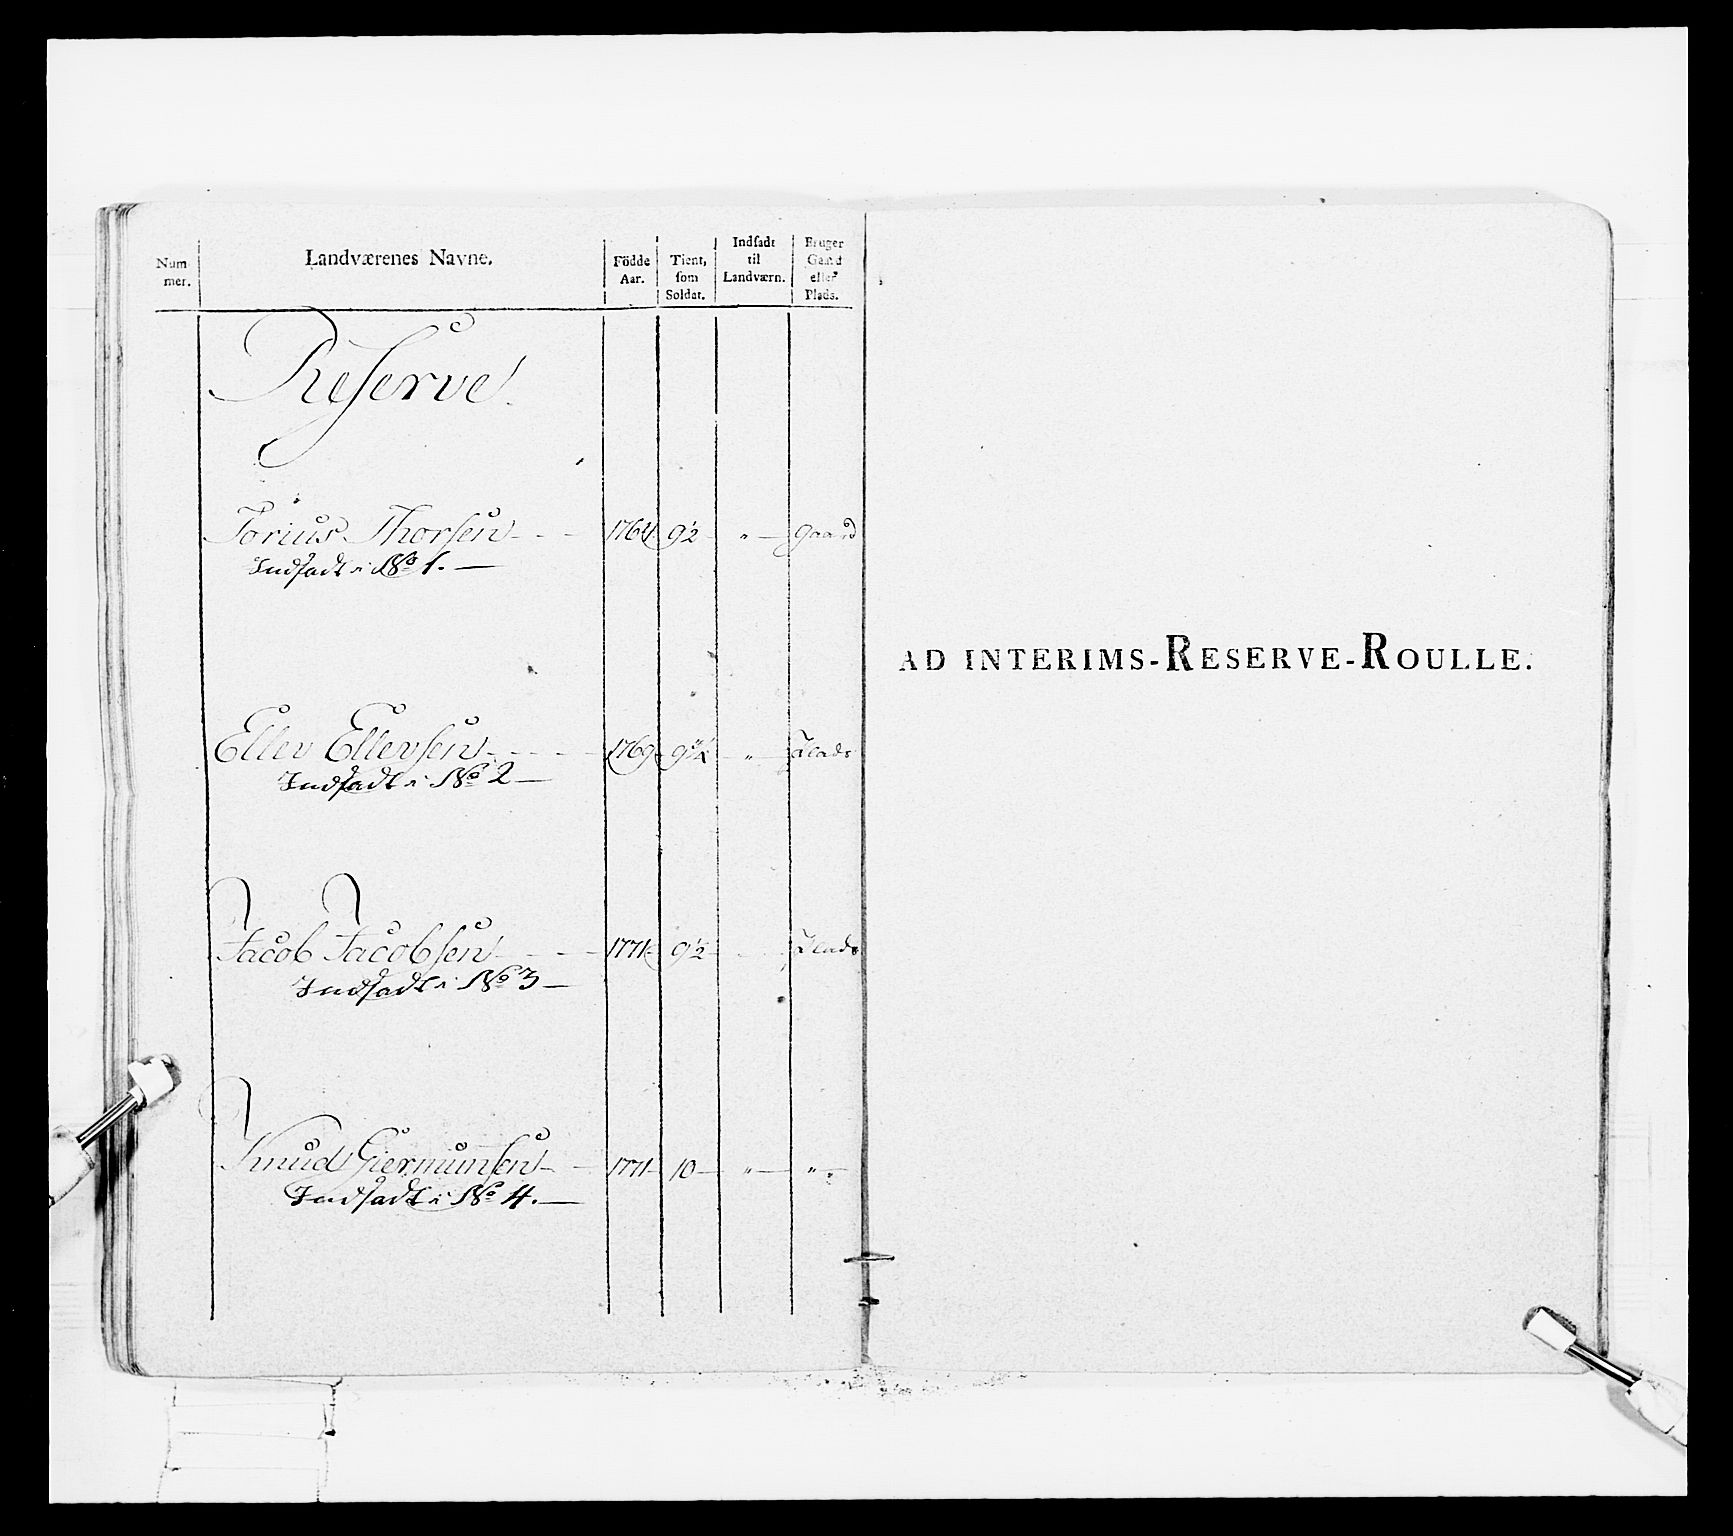 Num-
mer.
Landværenes Navne.
Födde
Aar.
Tient,
som
Soldat.
Indsadt
til
Landværn.
Bruger
Gaard
eller
Plads.
Reserve
Torius Thorsen - - - 1764 9½ - " - gaard
Indsadt i No 1. -
Ellev Ellevsen - - - - 1769 9¼ - " - Plads
Indsadt i No 2 -
Jacob Jacobsen - - - - 1771 9½ - Plads
Indsadt i No 3 -
Knud Giermunsen - - 1771 10 - " - " -
Indsadt i No 4. -
AD INTERIMS-RESERVE-ROULLE.